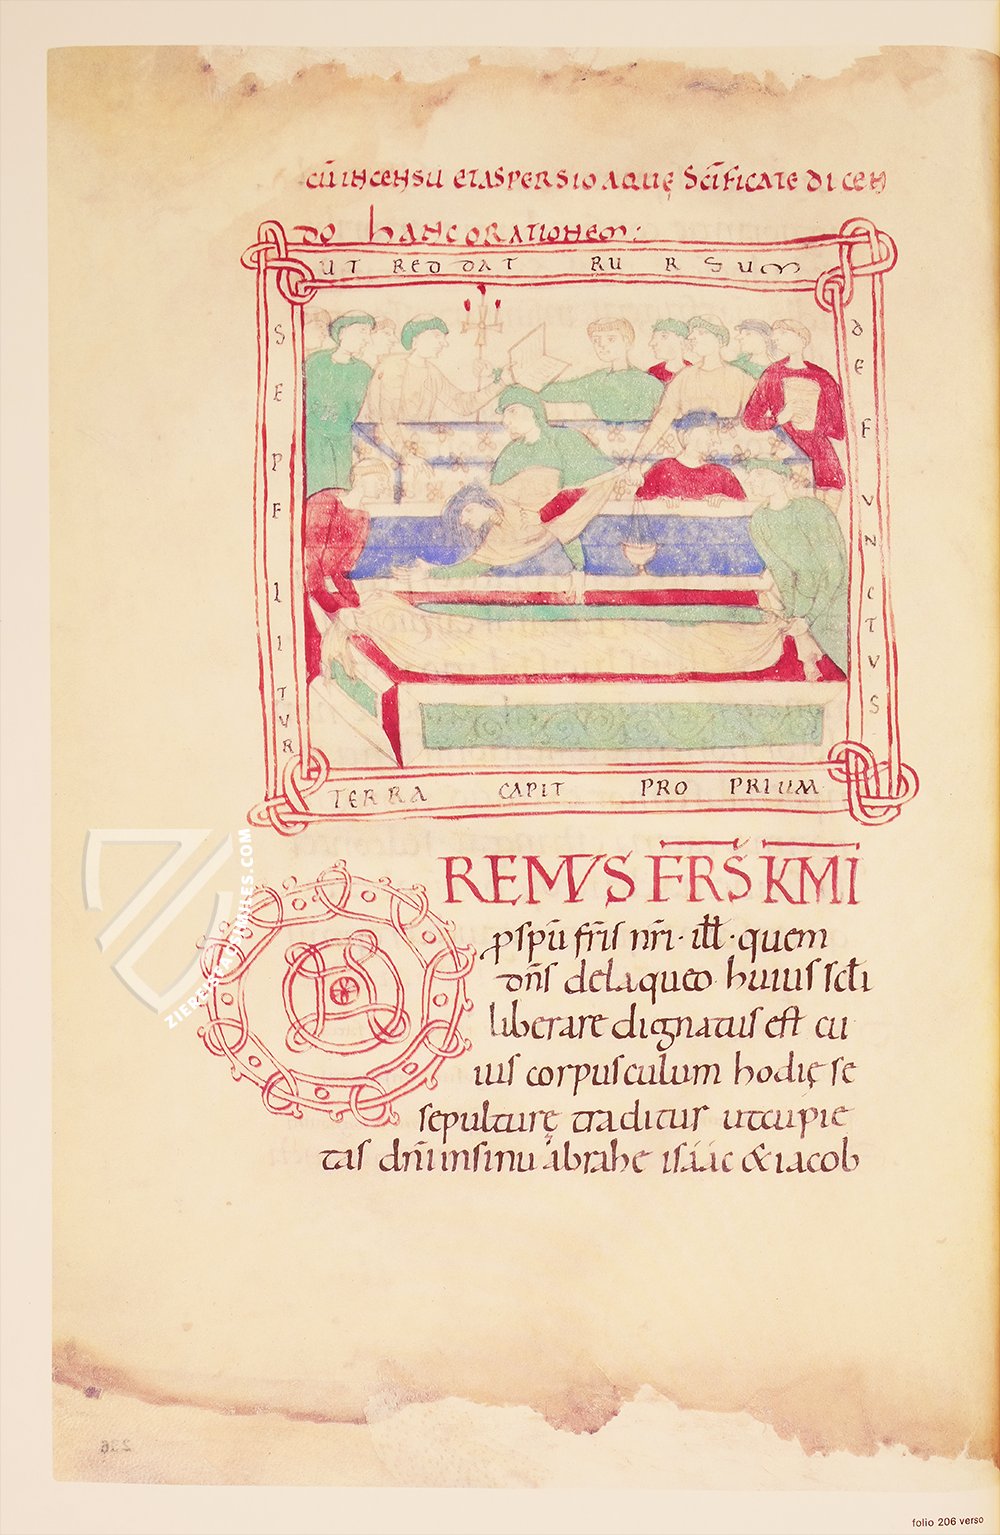 cūincensu etaspersio aquę Sc̄ificate dicen
do hanc orationem:
UT REDDAT RURSUM
SEPELITUR
DEFVNCTUS
TERRA CAPIT PROPRIUM
OREMVS FR̄S K̄M̄I
p spū fr̄is nr̄i · ill̄ · quem
dn̄s delaqueo huius sc̄li
liberare dignatus est cu
ius corpusculum hodię se
sepulturę traditur ut cū pie
tas dn̄i insinu abrahe isáác & iacob
ZIEREIS FACSIMILES.COM
236
folio 206 verso